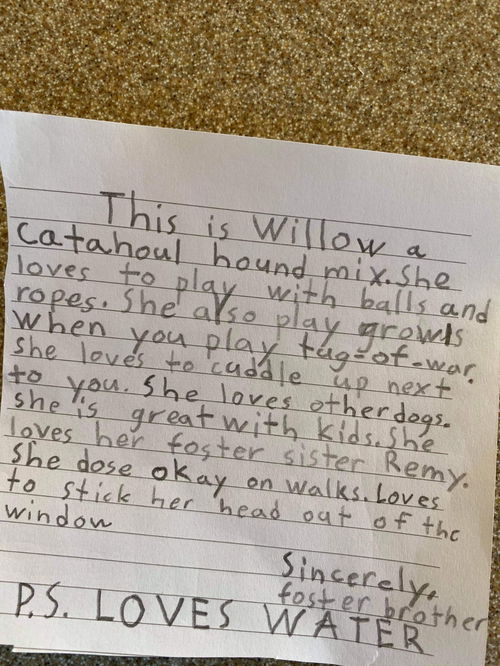 This is Willow a
catahoul hound mix. She
loves to play with balls and
ropes. She also play growls
when you play tug-of-war.
She loves to cuddle up next
to you. She loves other dogs.
She is great with kids. She
loves her foster sister Remy.
She dose okay on walks. Loves
to stick her head out of the
window
Sincerely,
foster brother
P.S. LOVES WATER